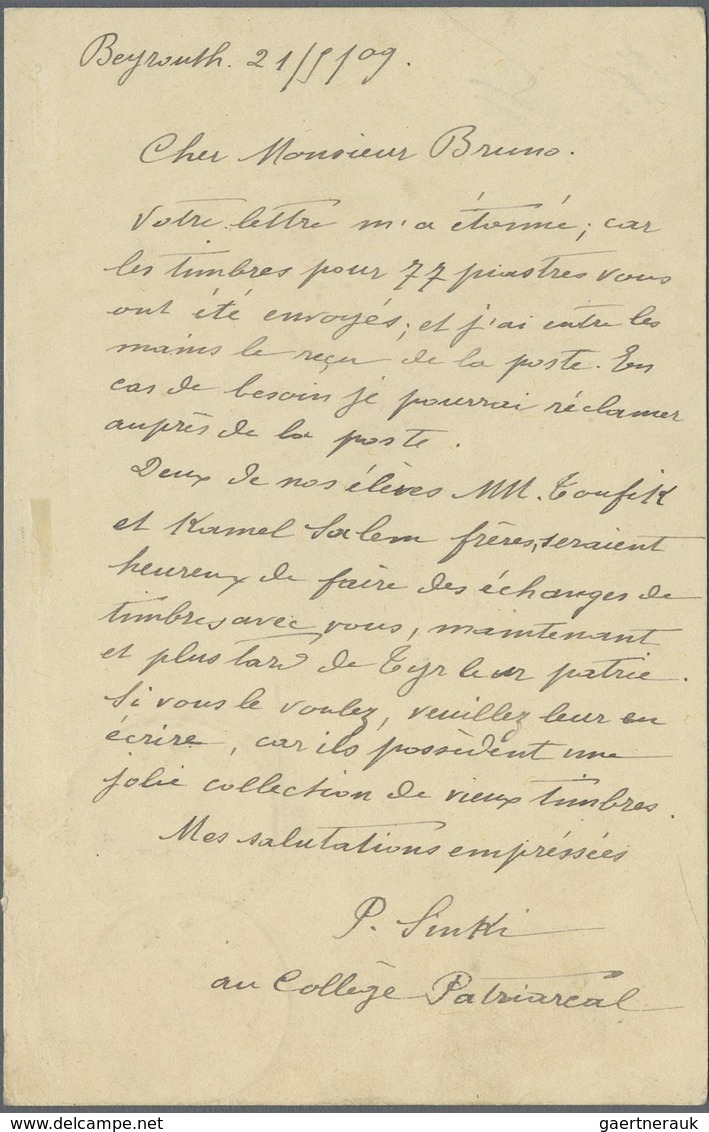 Beyrouth. 21/5/09.
Cher Monsieur Bruno.
Votre lettre m'a étonné; car
les timbres pour 77 piastres vous
ont été envoyés; et j'ai entre les
mains le reçu de la poste. En
cas de besoin je pourrai réclamer
auprès de la poste.
Deux de nos élèves MM. Toufik
et Kamel Salem frères, seraient
heureux de faire des échanges de
timbres avec vous, maintenant
et plus tard de Tyr leur patrie.
Si vous le voulez, veuillez leur en
écrire, car ils possèdent une
jolie collection de vieux timbres.
Mes salutations empréssées
P. Sinki
au Collège Patriarcal
gaertnerauk